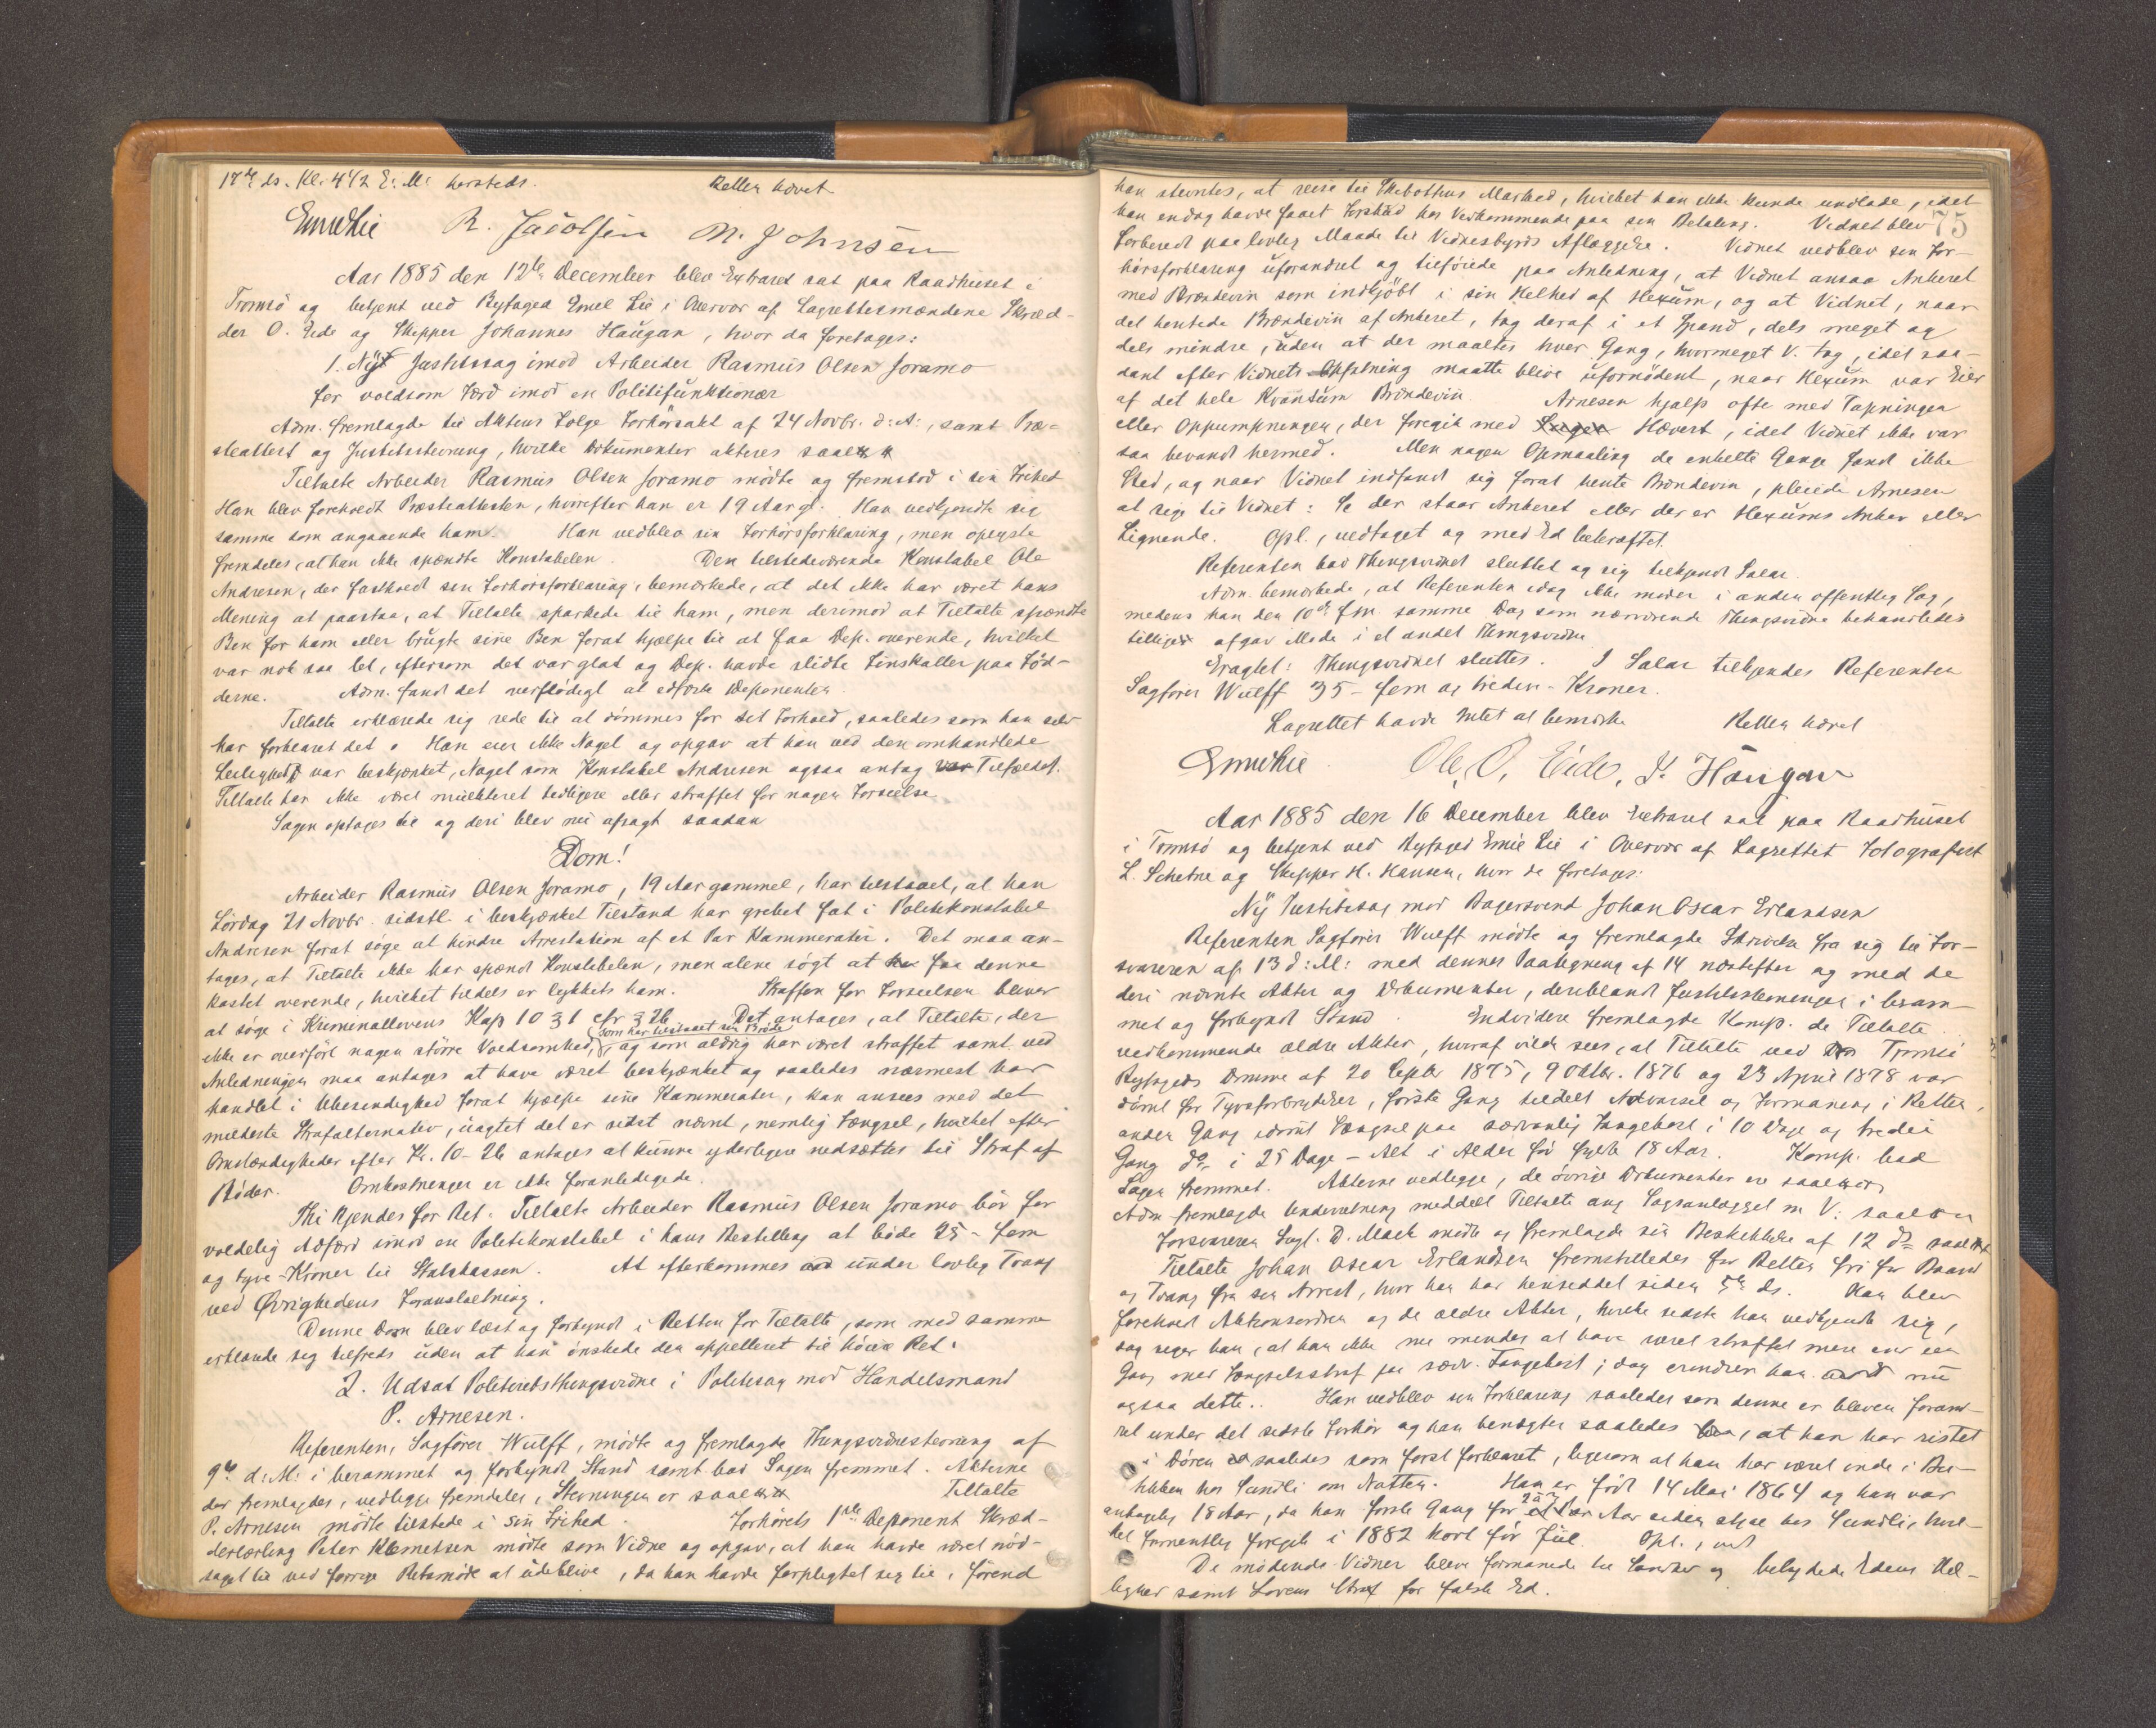 17de ds. Kl. 4 1/2 E: M: hersteds. Retten hævet
Emil Lie R. Jacobsen M. Johnsen
Aar 1885 den 12te December blev Extraret sat paa Raadhuset i
Tromsö og betjent ved Byfoged Emil Lie i Overvær af Lagrettesmændene Skræd-
der O. Eide og Skipper Johannes Haugan, hvor da foretoges:
1. Ny Justitssag imod Arbeider Rasmus Olsen Joramo
for voldsom Færd imod en Politifunktionær
Adm. fremlagde til Aktens Følge Forhörsakt af 24 Novbr. d: A:, samt Præ-
steattest og Justitsstevning, hvilke Dokumenter akteres saal
Tiltalte Arbeider Rasmus Olsen Joramo mödte og fremstod i sin Frihed
Han blev foreholdt Præsteattesten, hvorefter han er 19 Aar gl. Han vedkjendte sig
samme som angaaende ham. Han vedblev sin Forhörsforklaring, men
fremdeles, at han ikke spændte Konstabelen. Den tilstedeværende Konstabel Ole
Andresen, der fastholdt sin Forhörsforklaring, bemærkede, at det ikke har været hans
Mening at paastaa, at Tiltalte sparkede til ham, men derimod at Tiltalte spændte
Ben for ham eller brugte sine Ben forat hjælpe til at faa Dep. overende, hvilket
var nok saa let, eftersom det var glat og Dep. havde slidte Finskaller paa Föd-
derne. Adm. fandt det overflödigt at edfæste Deponenten
Tiltalte erklærede sig rede til at dömmes for det Forhold, saaledes som han selv
har forklaret det. Han eier ikke Noget og opgav at han ved den omhandlede
Leilighed var beskjænket, Noget som Konstabel Andresen ogsaa antog Tilfældet.
Tiltalte har ikke været mulkteret tidligere eller straffet for nogen Forseelse
Sagen optoges til og deri blev nu afsagt saadan
Dom!
Arbeider Rasmus Olsen Joramo, 19 Aar gammel, har tilstaaet, at han
Lördag 21 Novbr. sidstl. i beskjænket Tilstand har grebet fat i Politikonstabel
Andresen forat söge at hindre Arrestation af et Par Kammerater. Det maa an-
tages, at Tiltalte ikke har spændt Konstabelen, men alene sögt at faa denne
kastet overende, hvilket tildels er lykkets ham. Straffen for Forseelsen bliver
at söge i Kriminallovens Kap 10 § 1 cfr § 26. Det antages, at Tiltalte, der
som har tilstaaet sin Bröde
ikke er overfört nogen större Voldsomhed, og som aldrig har været straffet samt ved
Anledningen maa antages at have været beskjænket og saaledes nærmest har
handlet i Ubesindighed forat hjælpe sine Kammerater, kan ansees med det
mildeste Strafalternativ, uagtet det er sidst nævnt, nemlig Fængsel, hvilket efter
Omstændigheder efter Kr. 10-26 antages at kunne yderligere nedsættes til Straf af
Böder. Omkostninger er ikke foranledigede.
Thi kjendes for Ret: Tiltalte Arbeider Rasmus Olsen Joramo bör for
voldelig Adfærd imod en Politikonstabel i hans Bestilling at böde 25 - fem
og tyve - Kroner til Statskassen. At efterkommes under lovlig Tvang
ved Övrighedens Foranstaltning.
Denne Dom blev læst og forkyndt i Retten for Tiltalte, som med samme
erklærede sig tilfreds uden at han önskede den appelleret til höiere Ret.
2. Udsat Politiretsthingsvidne i Politisag mod Handelsmand
P. Arnesen.
Referenten, Sagförer Wulff, mödte og fremlagde Thingsvidnestevning af
9de d: M: i berammet og forkyndt Stand samt bad Sagen fremmet. Akterne
der fremlagdes, vedligge fremdeles, Stevningen er saal Tiltalte
P. Arnesen mödte tilstede i sin Frihed. Forhörets 1ste Deponent Skræd-
derlærling Peter Klemetsen mödte som Vidne og opgav, at han havde været nöd-
saget til ved forrige Retsmöde at udeblive, da han havde forpligtet sig til, förend
75
han stevntes, at reise til Skibotthns Marked, hvilket han ikke kunde undlade, idet
han endog havde faaet Forskud hos Vedkommende paa sin Betaling. Vidnet blev
forberedt paa lovlig Maade til Vidnesbyrds Aflæggelse. Vidnet vedblev sin For-
hörsforklaring uforandret og tilföiede paa Anledning, at Vidnet ansaa Ankeret
med Brændevin som indkjöbt i sin Helhed af Hexum, og at Vidnet, naar
det hentede Brændevin af Ankeret, tog deraf i et Spand, dels meget og
dels mindre, uden at der maaltes hver Gang, hvormeget V. tog, idet saa-
dant efter Vidnets Opfatning maatte blive ufornödent, naar Hexum var Eier
af det hele Kvantum Brændevin. Arnesen hjalp ofte med Tapningen
eller Oppumpningen, der foregik med Hævert, idet Vidnet ikke var
saa bevandt hermed. Men nogen Opmaaling de enkelte Gange fandt ikke
Sted, og naar Vidnet indfandt sig forat hente Brændevin, pleiede Arnesen
at sige til Vidnet: Se der staar Ankeret eller der er Hexums Anker eller
Lignende. Opl., vedtaget og med Ed bekræftet.
Referenten bad Thingsvidnet sluttet og sig tilkjendt Salær.
Adm. bemærkede, at Referenten idag ikke möder i anden offentlig Sag,
medens han den 10de f. M. samme Dag som nærværende Thingsvidne behandledes
tillige afgav Möde i et andet Thingsvidne
Eragtet: Thingsvidnet sluttes. I Salær tilkjendes Referenten
Sagförer Wulff 35 - fem og tredive - Kroner.
Lagrettet havde Intet at bemærke Retten hævet
Emil Lie Ole O. Eide, J. Haugan
Aar 1885 den 16 December blev Extraret sat paa Raadhuset
i Tromsö og betjent ved Byfoged Emil Lie i Overvær af Lagrettet Fotografist
L. Schetne og Skipper H. Hansen, hvor da foretoges:
Ny Justitssag mod Bagersvend Johan Oscar Erlandsen
Referenten Sagförer Wulff mödte og fremlagde Skrivelse fra sig til For-
svareren af 13 d: M: med dennes Paategning af 14 næstefter og med de
deri nævnte Akter og Dokumenter, deriblandt Justitsstevningen i beram-
met og forkyndt Stand. Endvidere fremlagde Komp. de Tiltalte
vedkommende ældre Akter, hvoraf vilde sees, at Tiltalte ved Tromsö
Byfogeds Domme af 20 Septbr 1875, 9 Oktbr. 1876 og 23 April 1878 var
dömt for Tyvsforbrydelser, förste Gang tildelt Advarsel og Formaning i Retten,
anden Gang idömt Fængsel paa sædvanlig Fangekost i 10 Dage og tredie
Gang do i 25 Dage - Alt i Alder för fyldte 18 Aar. Komp. bad
Sagen fremmet. Akterne vedligge, de övrige Dokumenter er saal
Adm. fremlagde Underretning meddelt Tiltalte ang. Sagsanlægget m V: saal
Forsvareren Sagf. D. Mack mödte og fremlagde sin Beskikkelse af 12 ds saal
Tiltalte Johan Oscar Erlandsen fremstilledes for Retten fri for Baand
og Tvang fra sin Arrest, hvor han har henseddet siden 5te ds. Han blev
foreholdt Aktionsordren og de ældre Akter, hvilke sidste han vedkjendte sig,
dog siger han, at han ikke nu mindes at have været straffet mere end een
Gang med Fængselsstraf paa sædv. Fangekost; dog erindrer han nu
ogsaa dette. Han vedblev sin Forklaring saaledes som denne er bleven foran-
ret under det sidste Forhör og han benægter saaledes, at han har ristet
i Dören saaledes som först forklaret, ligesom at han har været inde i Bu-
tikken hos Sundli om Natten. Han er född 14 Mai 1864 og han var
antagelig 18 Aar, da han förste Gang for 2 à 3 Aar siden stjal hos Sundli, hvil-
ket formentlig foregik i 1882 kort för Jul. Opl., ved
De mödende Vidner bleve formanede til Sandhed og betydede Edens Hel-
lighed samt Lovens Straf for falsk Ed.